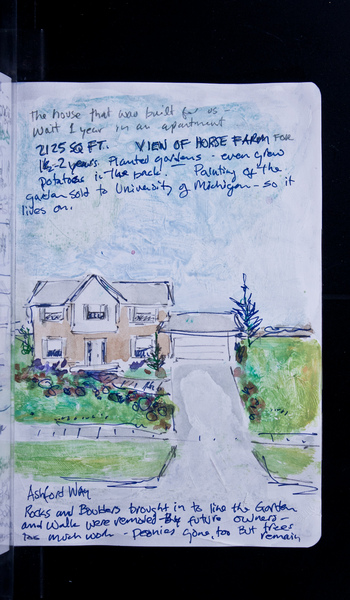 The house that was built for us -
Wait 1 year in an apartment
2125 SQ FT. VIEW OF HORSE FARM FOR
1½-2 years. Planted gardens - even grew
potatoes in the back. Painting of the
garden sold to University of Michigan - so it
lives on.
Ashford Way
Rocks and Boulders brought in to line the Garden
and Walk were removed By future owners -
too much work - Peonies gone, too But trees
remain